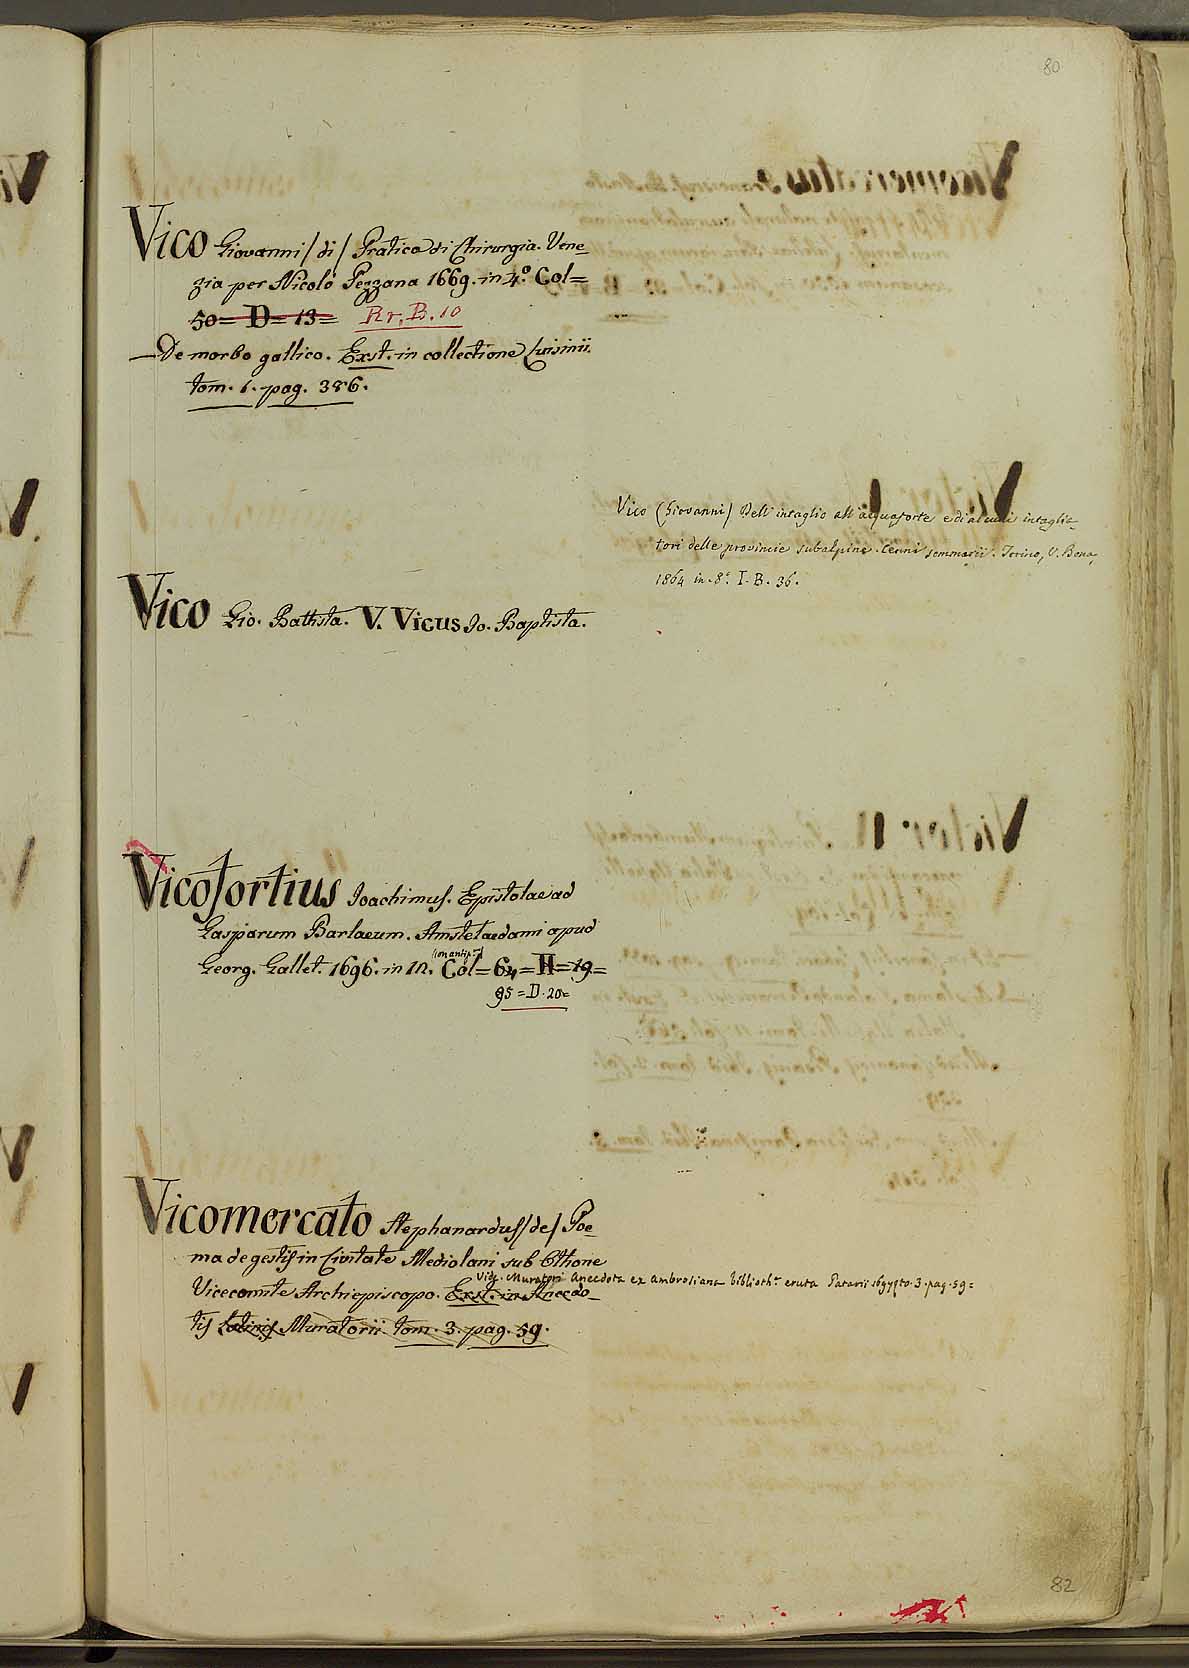 80
Vico Giovanni / di / Pratica di Chirurgia. Vene=
zia per Nicolò Pezzana 1669. in 4.º Col=
50= D= 13= Rr. B. 10
— De morbo gallico. Exst. in collectione Luisinii.
tom. 1. pag. 386.
Vico (Giovanni) Dell' intaglio all' acquaforte e di alcuni intaglia-
tori delle provincie subalpine. Cenni sommarii. Torino, V. Bona,
1864 in-8º. I. B. 36.
Vico Gio. Battista. V. Vicus Jo. Baptista.
Vicofortius Joachimus. Epistolae ad
Gasparum Barlaeum. Amstelaedami apud
Georg. Gallet. 1696. in 12. Col= 64= H= 19=
95= D. 20=
Vicomercato Stephanardus / de / Poe=
ma de gestis in Civitate Mediolani sub Othone
Vide Muratori Anecdota ex Ambrosiana biblioth. eruta Patavii to. 3. pag. 59=
Vicecomite Archiepiscopo. Exst. in Anecdo-
tis Latinis Muratorii tom. 3. pag. 59.
82